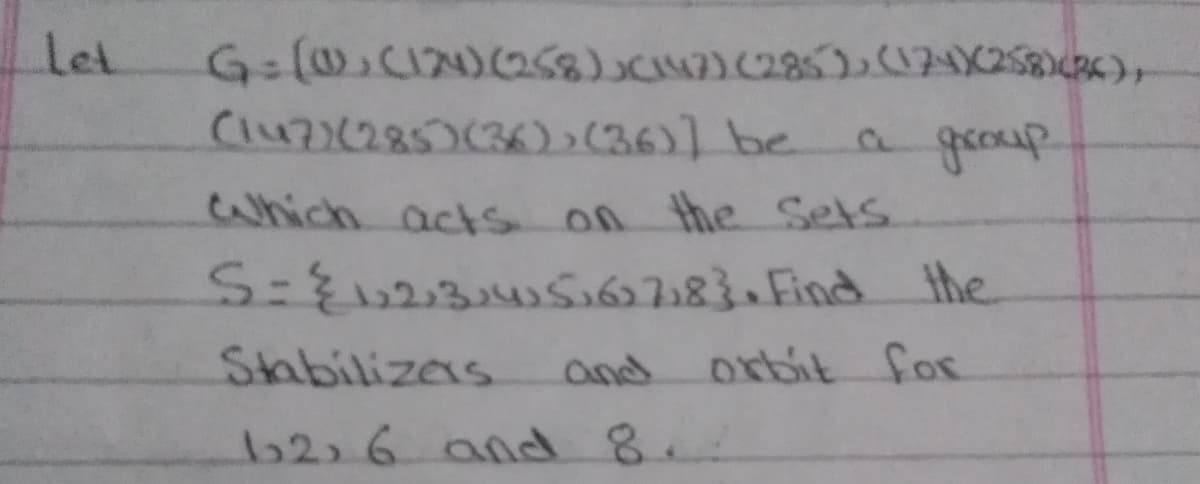 Let G = {(1), (174)(258), (147)(285), (174)(258)(36),
(147)(285)(36), (36)] be a group
which acts on the sets
S = {1,2,3,4,5,6,7,8}. Find the
Stabilizers and orbit for
1,2,6 and 8.